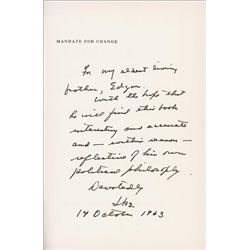 MANDATE FOR CHANGE
For my eldest living
brother, Edgar.
With the hope that
he will find this book
interesting and accurate
and — within reason —
reflective of his own
political philosophy.
Devotedly
Ike
14 October 1963